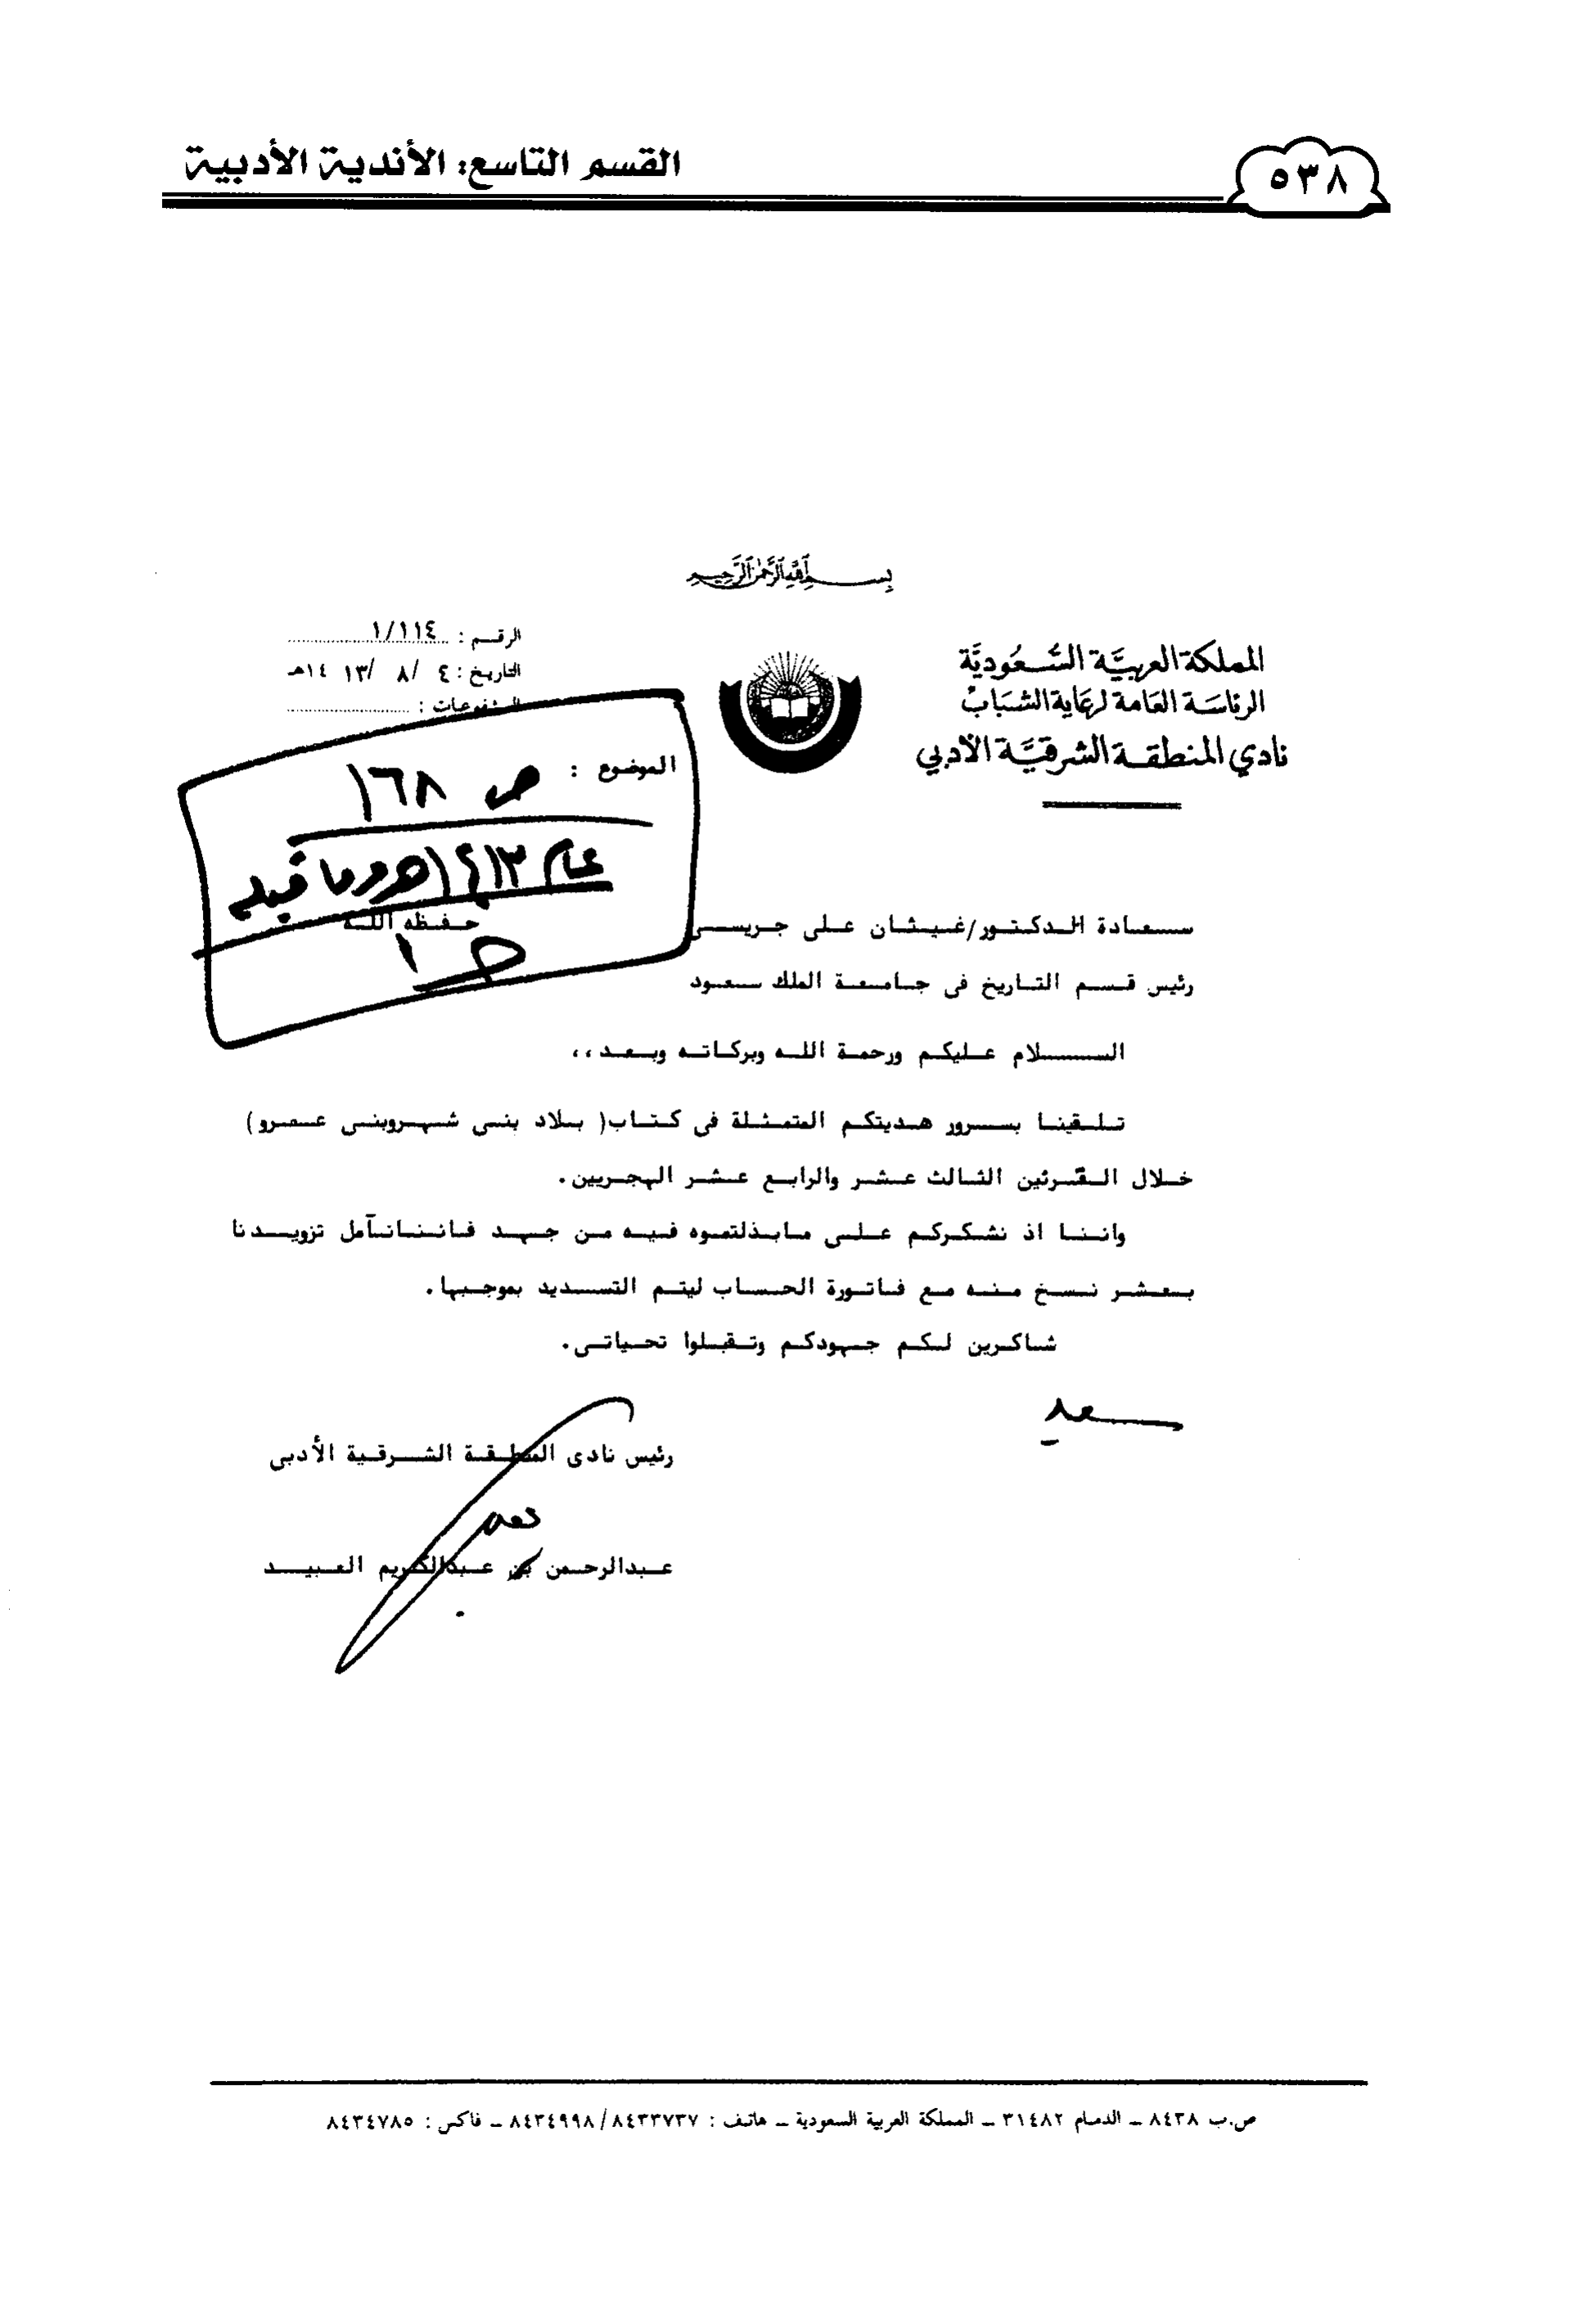 ٥٣٨
القسم التاسع: الأندية الأدبية
بسم الله الرحمن الرحيم
المملكة العربية السعودية
الرئاسة العامة لرعاية الشباب
نادي المنطقة الشرقية الأدبي
الرقم : ١/١١٤
التاريخ : ٤ /٨ /١٤١٣هـ
المشفوعات :
الموضوع :
ص ١٦٨
عام ١٤١٣هـ وما قبله
سعادة الدكتور/غيثان على جريسى حفظه الله
رئيس قسم التاريخ فى جامعة الملك سعود
السلام عليكم ورحمة الله وبركاته وبعد،،
تلقينا بسرور هديتكم المتمثلة فى كتاب( بلاد بنى شهروبنى عمرو)
خلال القرنين الثالث عشر والرابع عشر الهجريين.
واننا اذ نشكركم على مابذلتموه فيه من جهد فاننانآمل تزويدنا
بعشر نسخ منه مع فاتورة الحساب ليتم التسديد بموجبها.
شاكرين لكم جهودكم وتقبلوا تحياتى.
رئيس نادى المنطقة الشرقية الأدبى
عبدالرحمن بن عبدالكريم العبيد
ص.ب ٨٤٣٨ - الدمام ٣١٤٨٢ - المملكة العربية السعودية - هاتف : ٨٤٣٣٧٣٧/٨٤٣٤٩٩٨ - فاكس : ٨٤٣٤٧٨٥